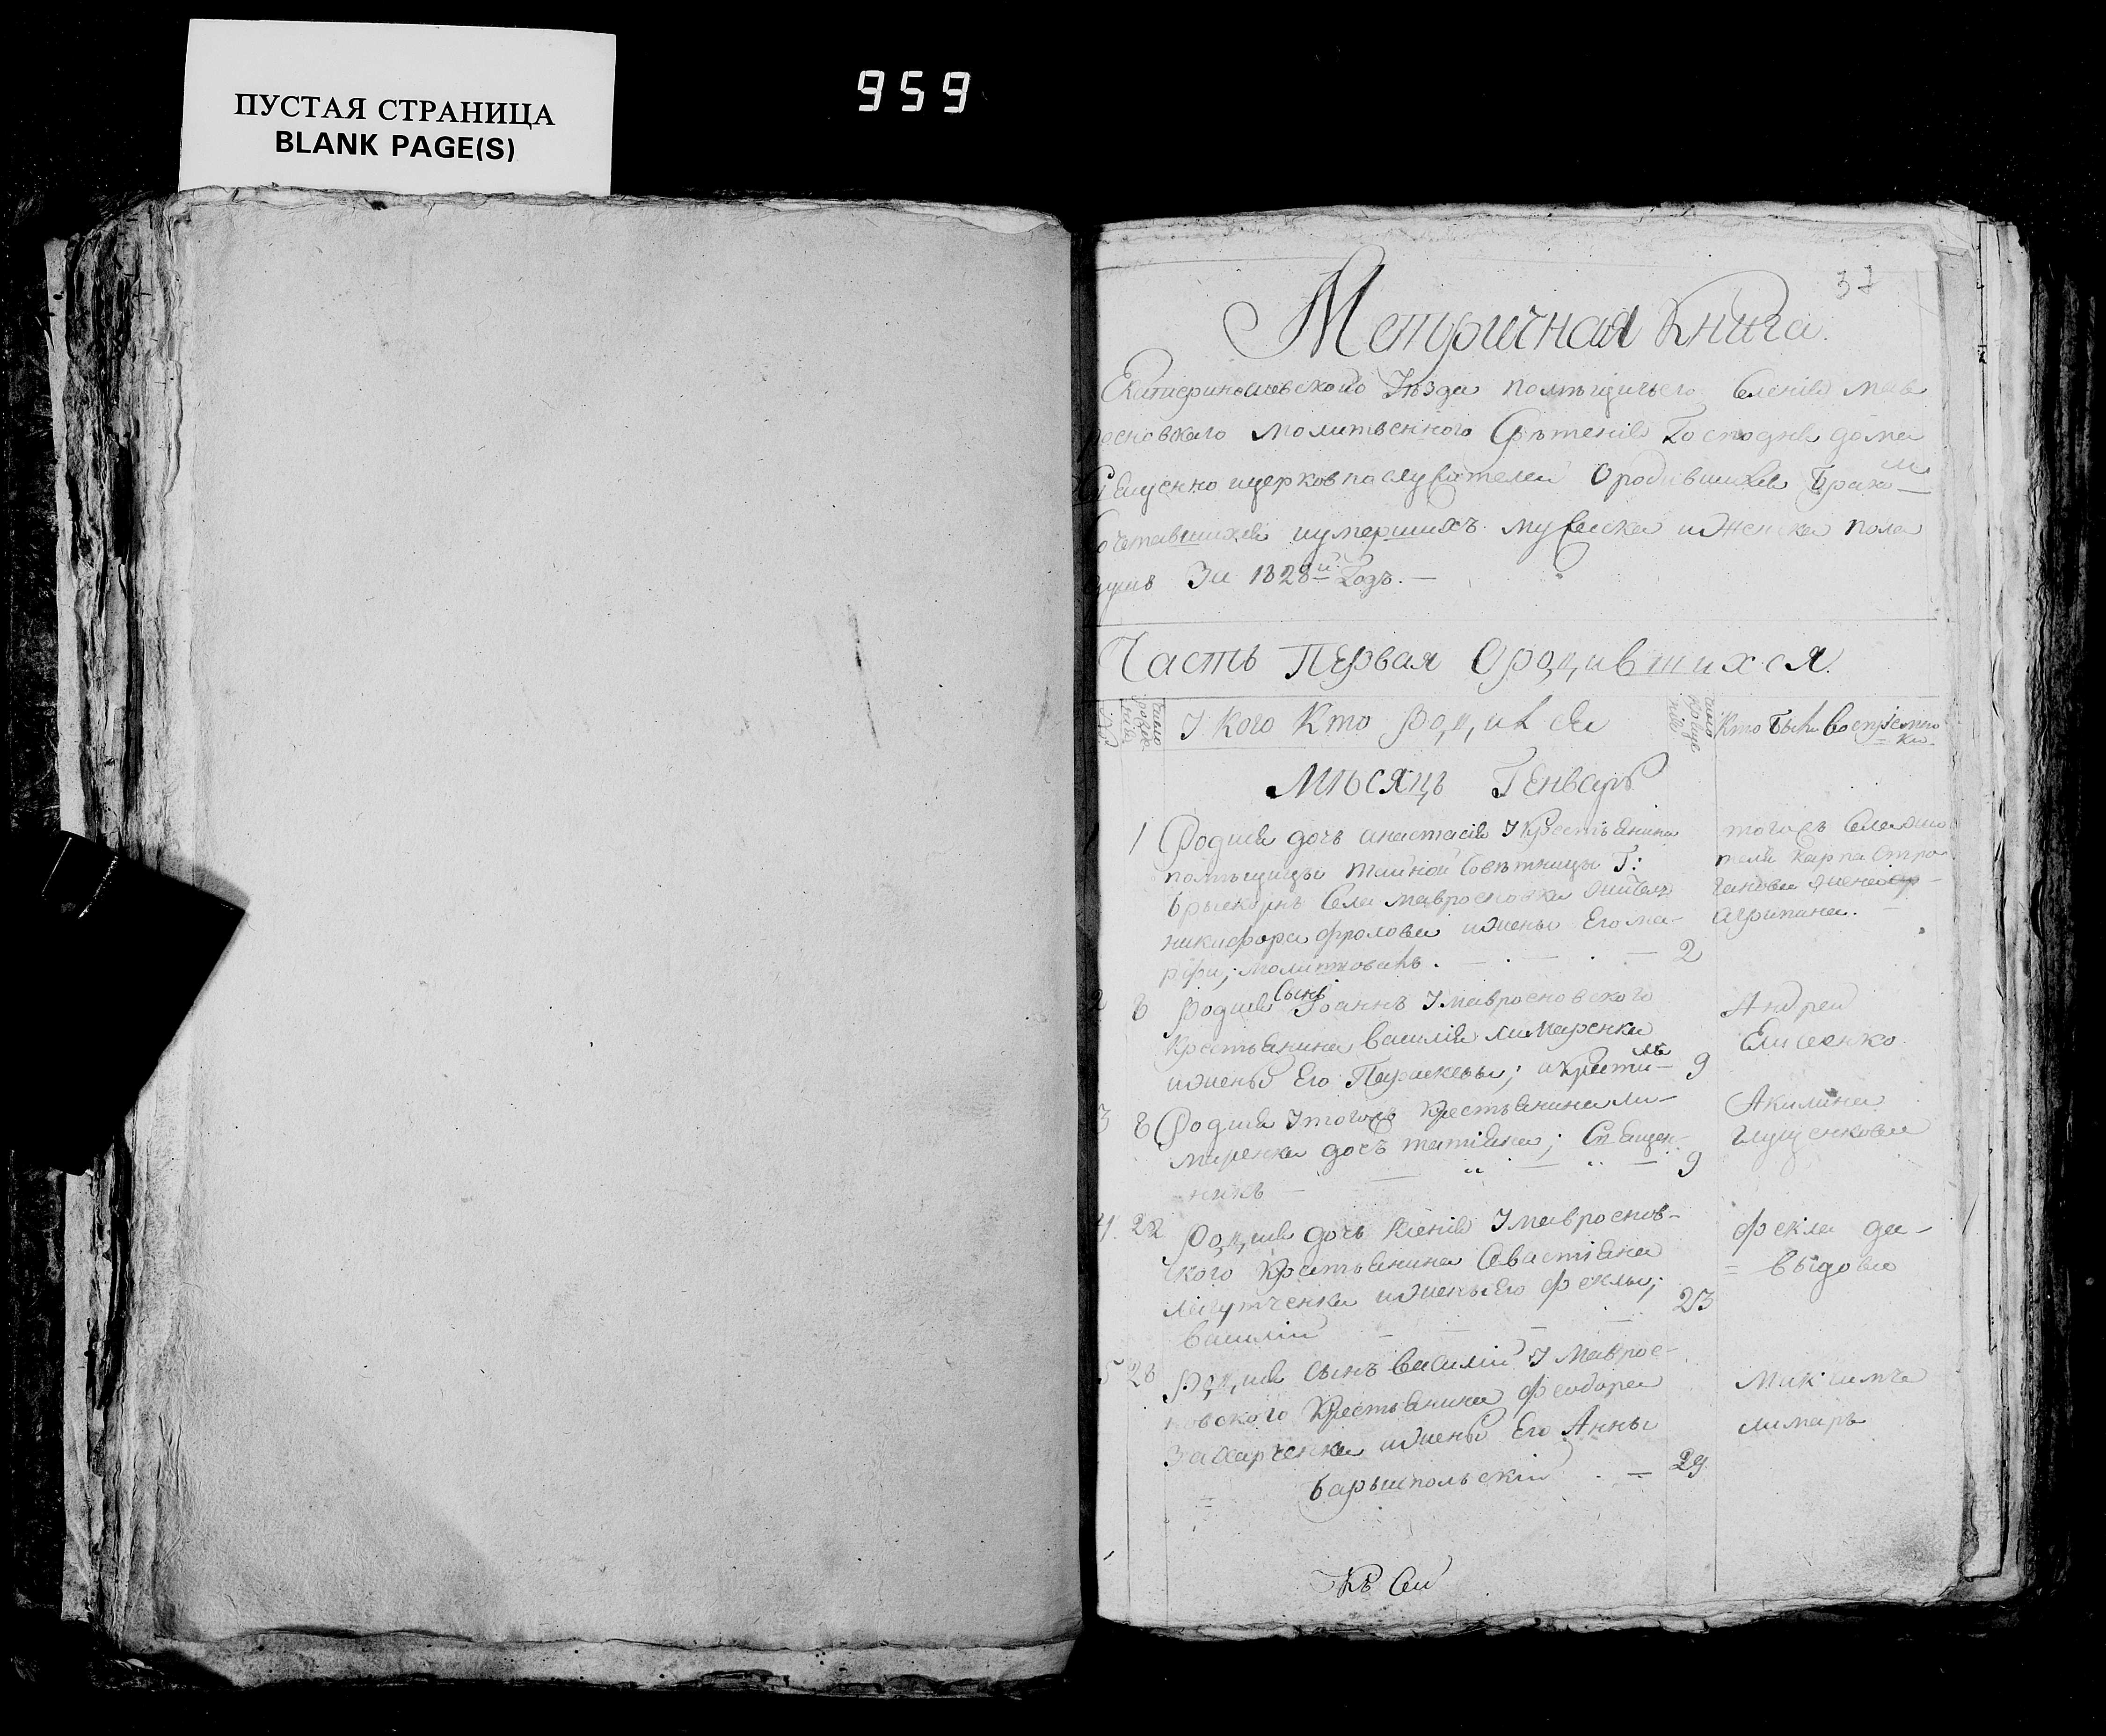 ПУСТАЯ СТРАНИЦА
BLANK PAGE(S)
959
37
Метричная Книга.
Екатеринославского Уѣзда помѣщичьего Селенія Мав
росновского Молитвенного Срѣтенія Господня дома
Священно ицерковнослужителей Ородившихся Брако
=мъ
сочетавшихся иумершихъ мужеска иженска пола
душъ За 1828й Годъ.
Часть Первая Ородившихся.
число рожденія
У кого Кто родился
число крещенія
Кто были воспріемни
ки
Мѣсяць Генварь
1 1 Родися дочь анастасія У Крестьянина
помѣщицы тайной Совѣтницы Г:
села мавросновки
никифора фролова ижены Его ма-
рфи; молитвовалъ. 2
тогожъ села жи
теля карпа Стро
ганова жена
Агрипина.
2 8 Родися Сынъ Іоаннъ У мавросновского
Крестьянина василія лимаренка
ижены Его Параскевы; 9
Андрей
Елисенко
3 8 Родися У тогожъ Крестьянина ли-
маренка дочь татіана; Священ-
никъ 9
Акилина
Глущенкова
4. 22 Родися дочь Ксенія У мавроснов-
ского Крестьянина Севастіана
ижены Его феклы;
василій 23
фекла да-
=выдова
5 28 Родися Сынъ василій У Маврос-
новского Крестьянина феодора
Захарченка ижены Его Анны
= барышпольскій 29
Максимъ
лимарь